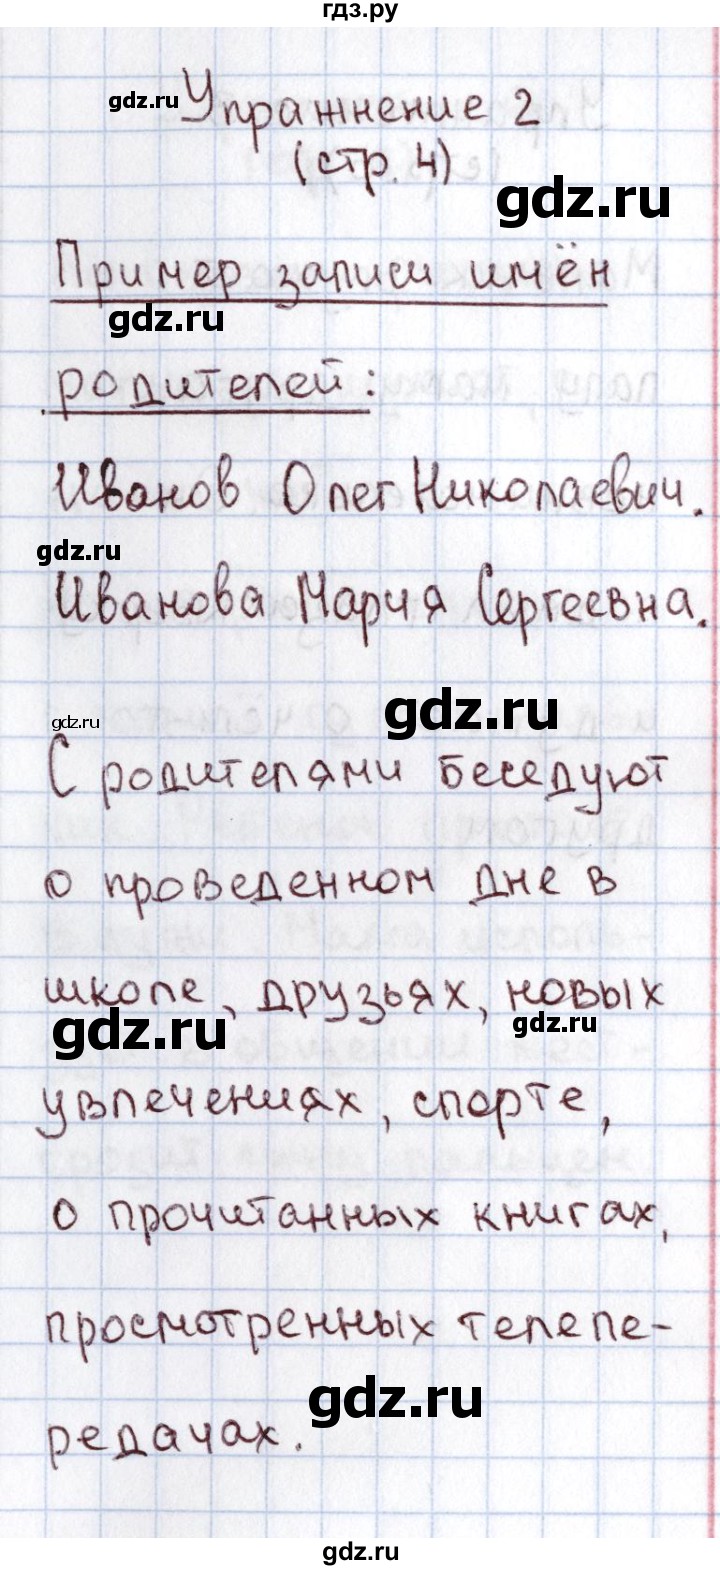 гдз.ру
gdz.ru
Упражнение 2
(стр. 4)
gdz.ru
Пример записи имён
gdz.ru
родителей:
Иванов Олег Николаевич.
gdz.ru
Иванова Мария Сергеевна.
gdz.ru
gdz.ru
С родителями беседуют
о проведенном дне в
школе, друзьях, новых
gdz.ru
gdz.ru
увлечениях, спорте,
о прочитанных книгах,
просмотренных телепе-
gdz.ru
редачах.
gdz.ru